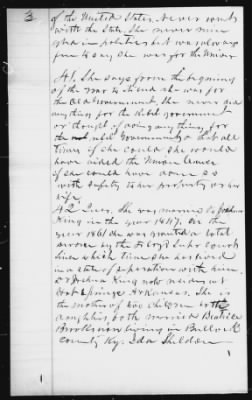 3
of the United States. Never voted
with the State. She never mixed
in politics but was always
free to say she was for the Union
41. She says from the beginning
of the war to its end she was for
the old Government. She never did
anything for the Rebel government
or thought of doing anything for
the rebel Government. That all
times if she could she would
have aided the Union cause
if she could have done so
with safety to her property or her
life.
42. Ans. She was married to Joshua
King in the year 1847. In the
year 1861 she was granted a total
divorce by the Court
since which time she has lived
in a state of separation with him.
Dr Joshua King now resides at
Hot Springs Arkansas. She is
the mother of two children both
daughters, both married Beatrice
Brooks now living in Bullock
County Ky. Ida Sheldon